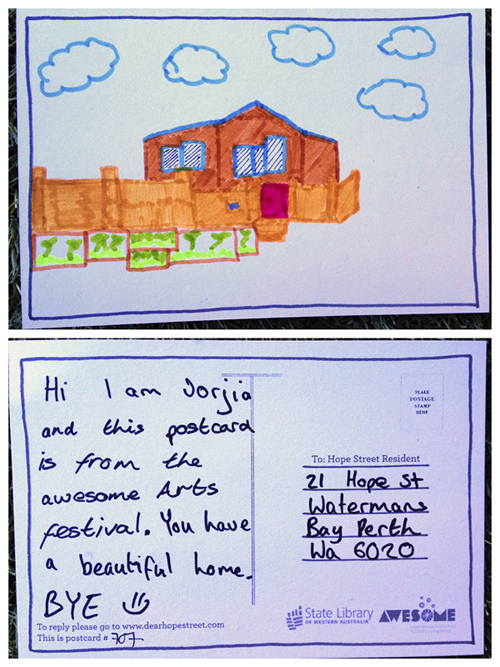 Hi I am Jorjia
and this postcard
is from the
awesome Arts
festival. You have
a beautiful home.
BYE
To reply please go to www.dearhopestreet.com
This is postcard # 707
PLACE
POSTAGE
STAMP
HERE
To: Hope Street Resident
21 Hope St
Watermans
Bay Perth
Wa 6020
State Library
OF WESTERN AUSTRALIA
AWESOME